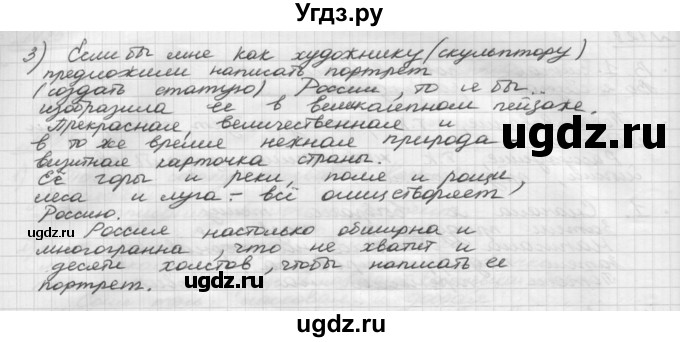 Угдз.ру
3) Если бы мне как художнику (скульптору)
предложили написать портрет
(создать статую) России, то я бы
изобразила её в великолепном пейзаже.
Прекрасная, величественная и
в то же время нежная природа
визитная карточка страны.
Её горы и реки, поля и рощи,
леса и луга – всё олицетворяет
Россию.
Россия настолько обширна и
многогранна, что не хватит и
десяти холстов, чтобы написать её
портрет.
ugdz.ru
ugdz.ru
ugdz.ru
ugdz.ru
ugdz.ru